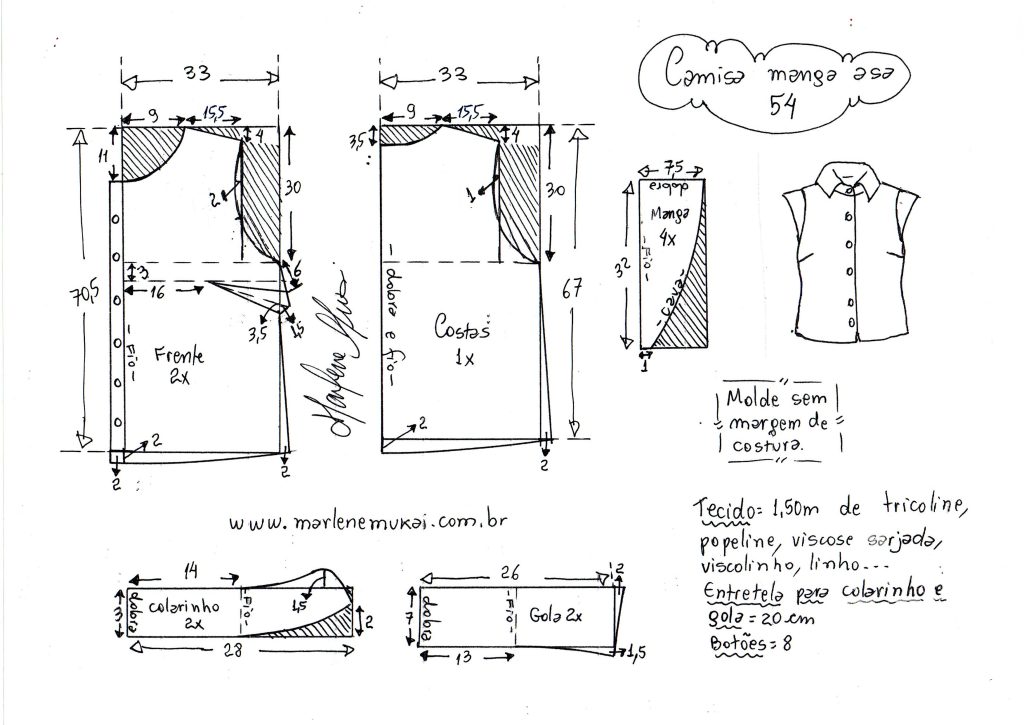 Camisa manga asa
54
33
9
15,5
4
11
2
30
3
16
6
3,5
1,5
70,5
-Fio-
Frente
2x
2
2
2
Marlene Mukai
33
9
15,5
3,5
4
1
30
- dobra e fio -
Costas
1x
67
2
2
7,5
dobra
Manga
4x
-Fio-
-cava-
32
1
Molde sem
margem de
costura.
www.marlenemukai.com.br
14
3
dobra
colarinho
2x
-Fio-
1,5
2
28
26
2
7
dobra
-Fio-
Gola 2x
13
1,5
Tecido= 1,50m de tricoline,
popeline, viscose sarjada,
viscolinho, linho...
Entretela para colarinho e
gola = 20cm
Botões = 8